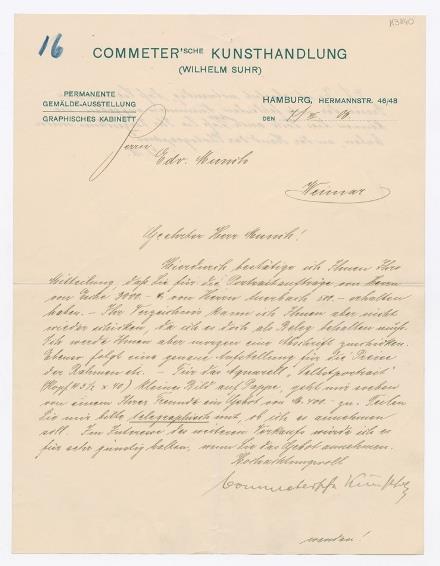 16
COMMETER'SCHE KUNSTHANDLUNG
(WILHELM SUHR)
PERMANENTE
GEMÄLDE-AUSSTELLUNG
GRAPHISCHES KABINETT
HAMBURG, HERMANNSTR. 46/48
DEN 7/
Herrn
Edv. Munch
Weimar
Geehrter Herr Munch!
Hierdurch bestätige ich Ihnen Ihre
Mitteilung, daß Sie für die Portraitaufträge von Herrn
von Esche 3000.- & von Herrn Auerbach 500.- erhalten
haben. - Ihr Verzeichnis kann ich Ihnen aber nicht
wieder schicken, da ich es doch als Beleg behalten muß.
Ich werde Ihnen aber morgen eine Abschrift zuschicken.
Ebenso folgt eine genaue Aufstellung für die Preise
der Rahmen etc. - Für das Aquarell, "Selbstportrait"
(Kopf 43½ x 40) kleines Bild auf Pappe, geht mir soeben
von einem Ihrer Freunde ein Gebot von M. 400.- zu. Teilen
Sie mir bitte telegraphisch mit, ob ich es annehmen
soll. Im Interesse des weiteren Verkaufs würde ich es
für sehr günstig halten, wenn Sie das Gebot annehmen.
Hochachtungsvoll
wenden!